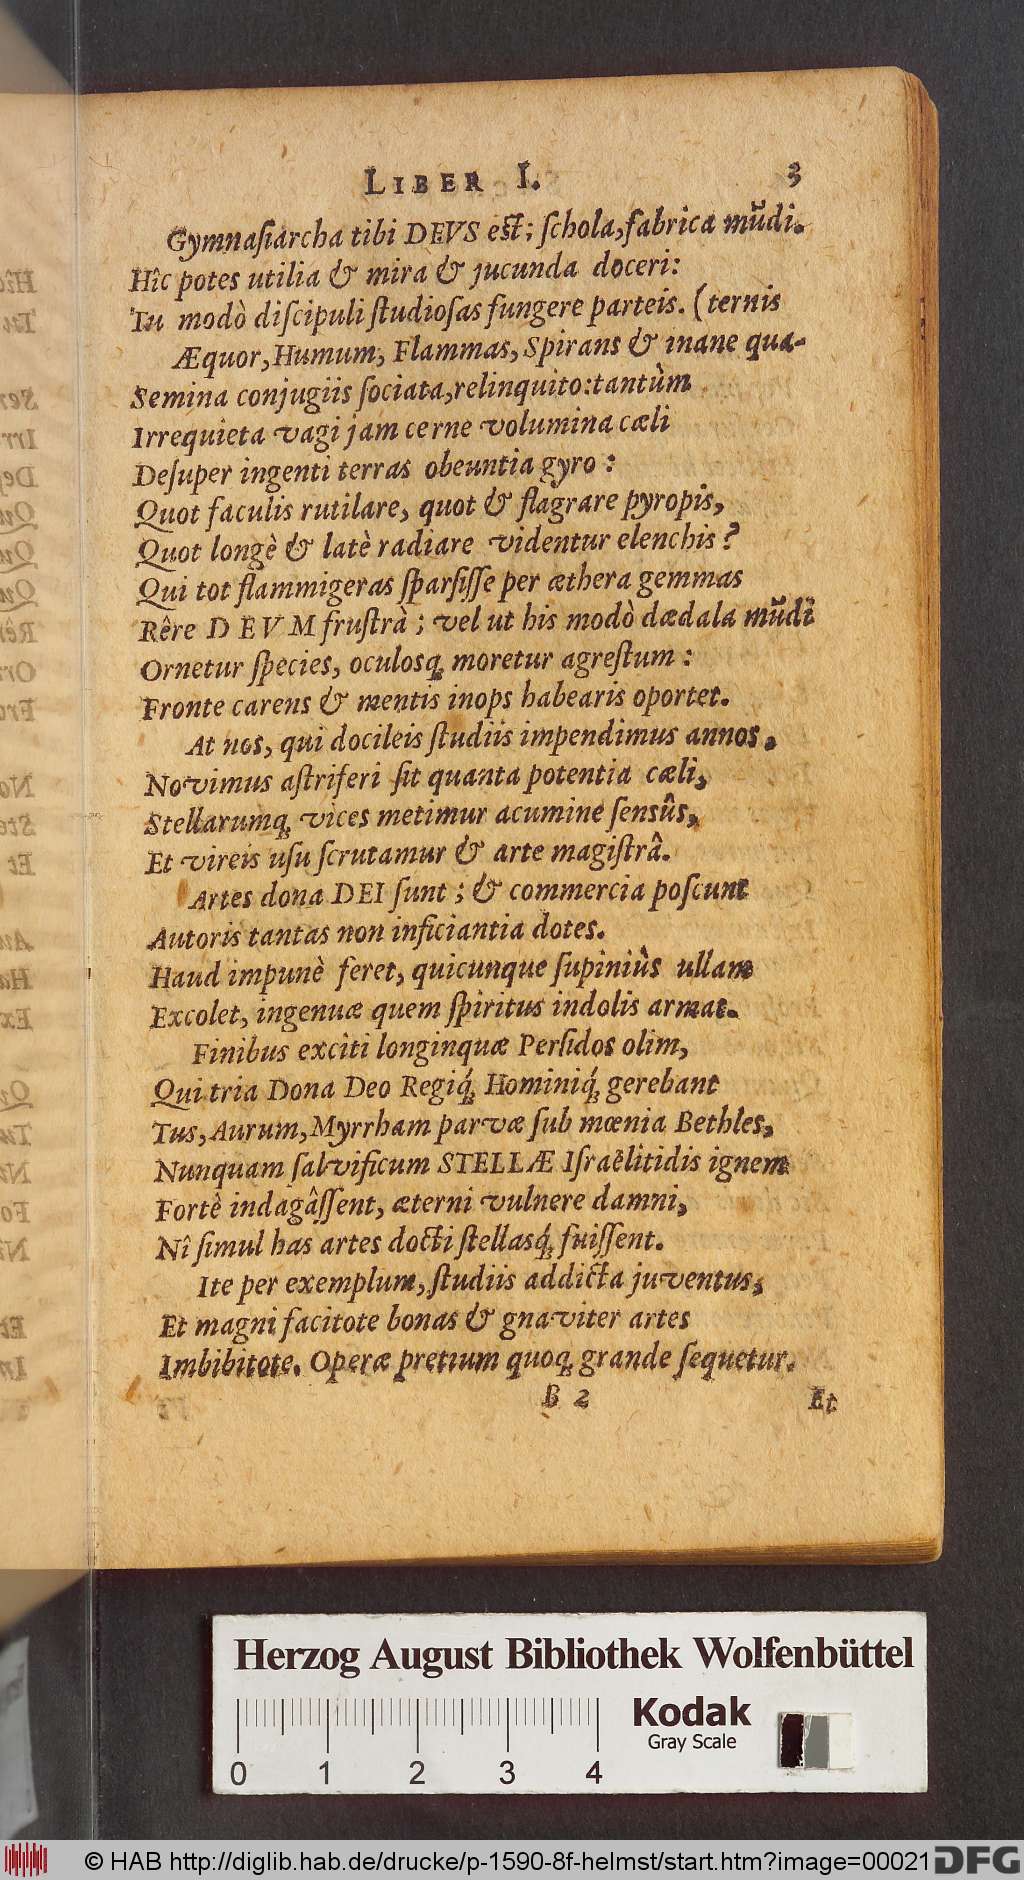 LIBER I. 3
Gymnaſiarcha tibi DEVS eſt; ſchola, fabrica mũdi.
Hîc potes utilia & mira & jucunda doceri:
Tu modò diſcipuli ſtudioſas fungere parteis. (ternis
Æquor, Humum, Flammas, Spirans & inane qua-
Semina conjugiis ſociata, relinquito: tantùm
Irrequieta vagi jam cerne volumina cæli
Deſuper ingenti terras obeuntia gyro:
Quot faculis rutilare, quot & flagrare pyropis,
Quot longè & latè radiare videntur elenchis?
Qui tot flammigeras ſparſiſſe per æthera gemmas
Rêre DEVM fruſtrà; vel ut his modò dædala mũdi
Ornetur ſpecies, oculosq́; moretur agreſtum:
Fronte carens & mentis inops habearis oportet.
At nos, qui docileis ſtudiis impendimus annos,
Novimus aſtriferi ſit quanta potentia cæli,
Stellarumq́; vices metimur acumine ſensûs,
Et vireis uſu ſcrutamur & arte magiſtrâ.
Artes dona DEI ſunt; & commercia poſcunt
Autoris tantas non inficiantia dotes.
Haud impunè feret, quicunque ſupiniùs ullam
Excolet, ingenuæ quem ſpiritus indolis armat.
Finibus exciti longinquæ Perſidos olim,
Qui tria Dona Deo Regiq́; Hominiq́; gerebant
Tus, Aurum, Myrrham parvæ ſub mœnia Bethles,
Nunquam ſalvificum STELLÆ Iſraëlitidis ignem
Fortè indagâſſent, æterni vulnere damni,
Nî ſimul has artes docti ſtellasq́; fuiſſent.
Ite per exemplum, ſtudiis addicta juventus,
Et magni facitote bonas & gnaviter artes
Imbibitote. Operæ pretium quoq́; grande ſequetur.
B 2 Et
Herzog August Bibliothek Wolfenbüttel
Kodak
Gray Scale
0 1 2 3 4
© HAB http://diglib.hab.de/drucke/p-1590-8f-helmst/start.htm?image=00021 DFG